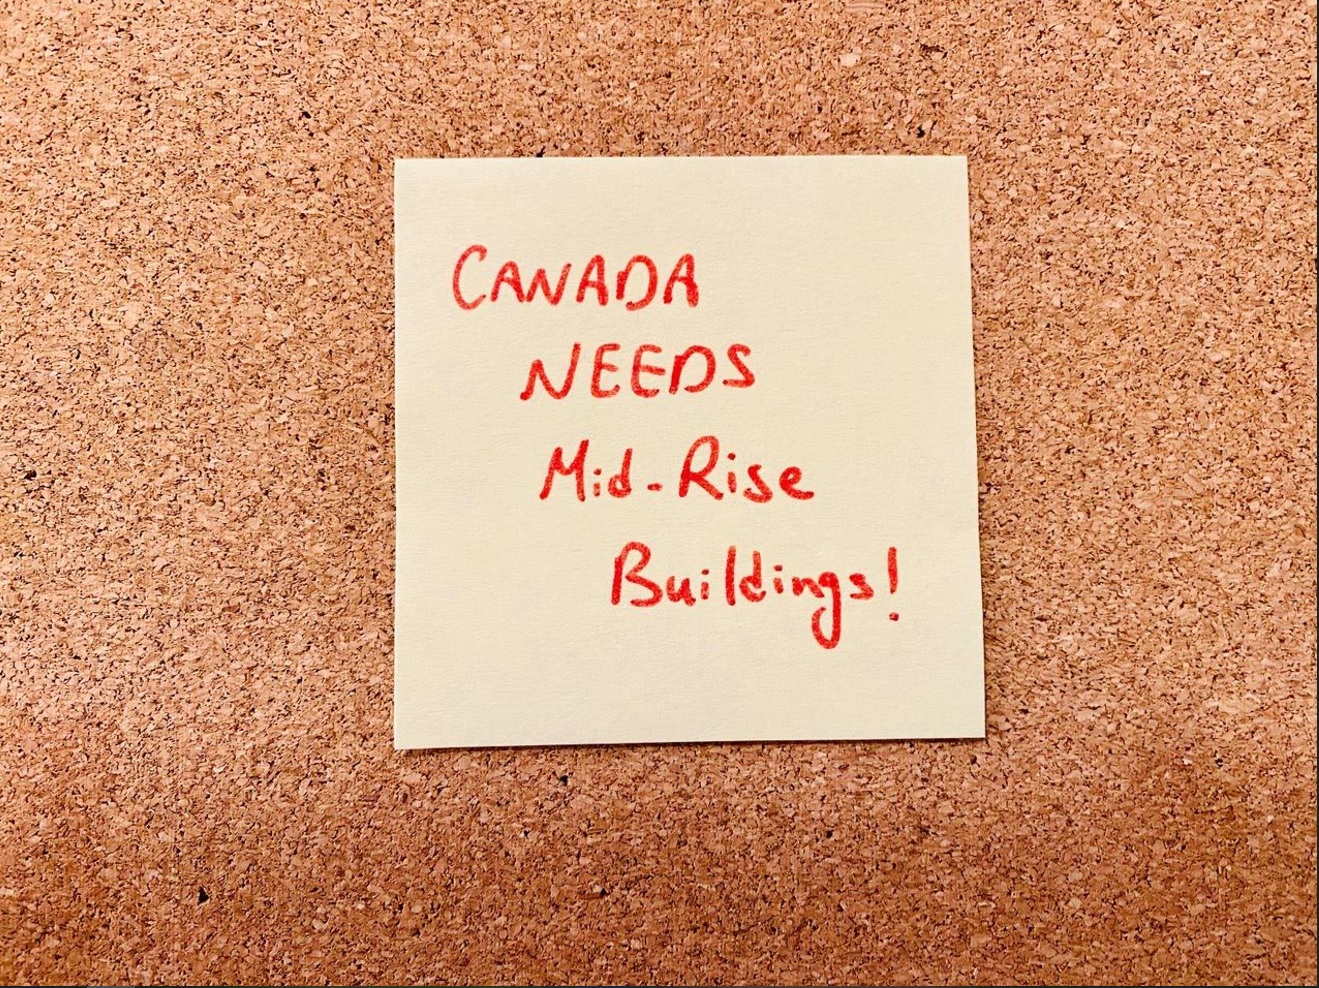 CANADA
NEEDS
Mid-Rise
Buildings!